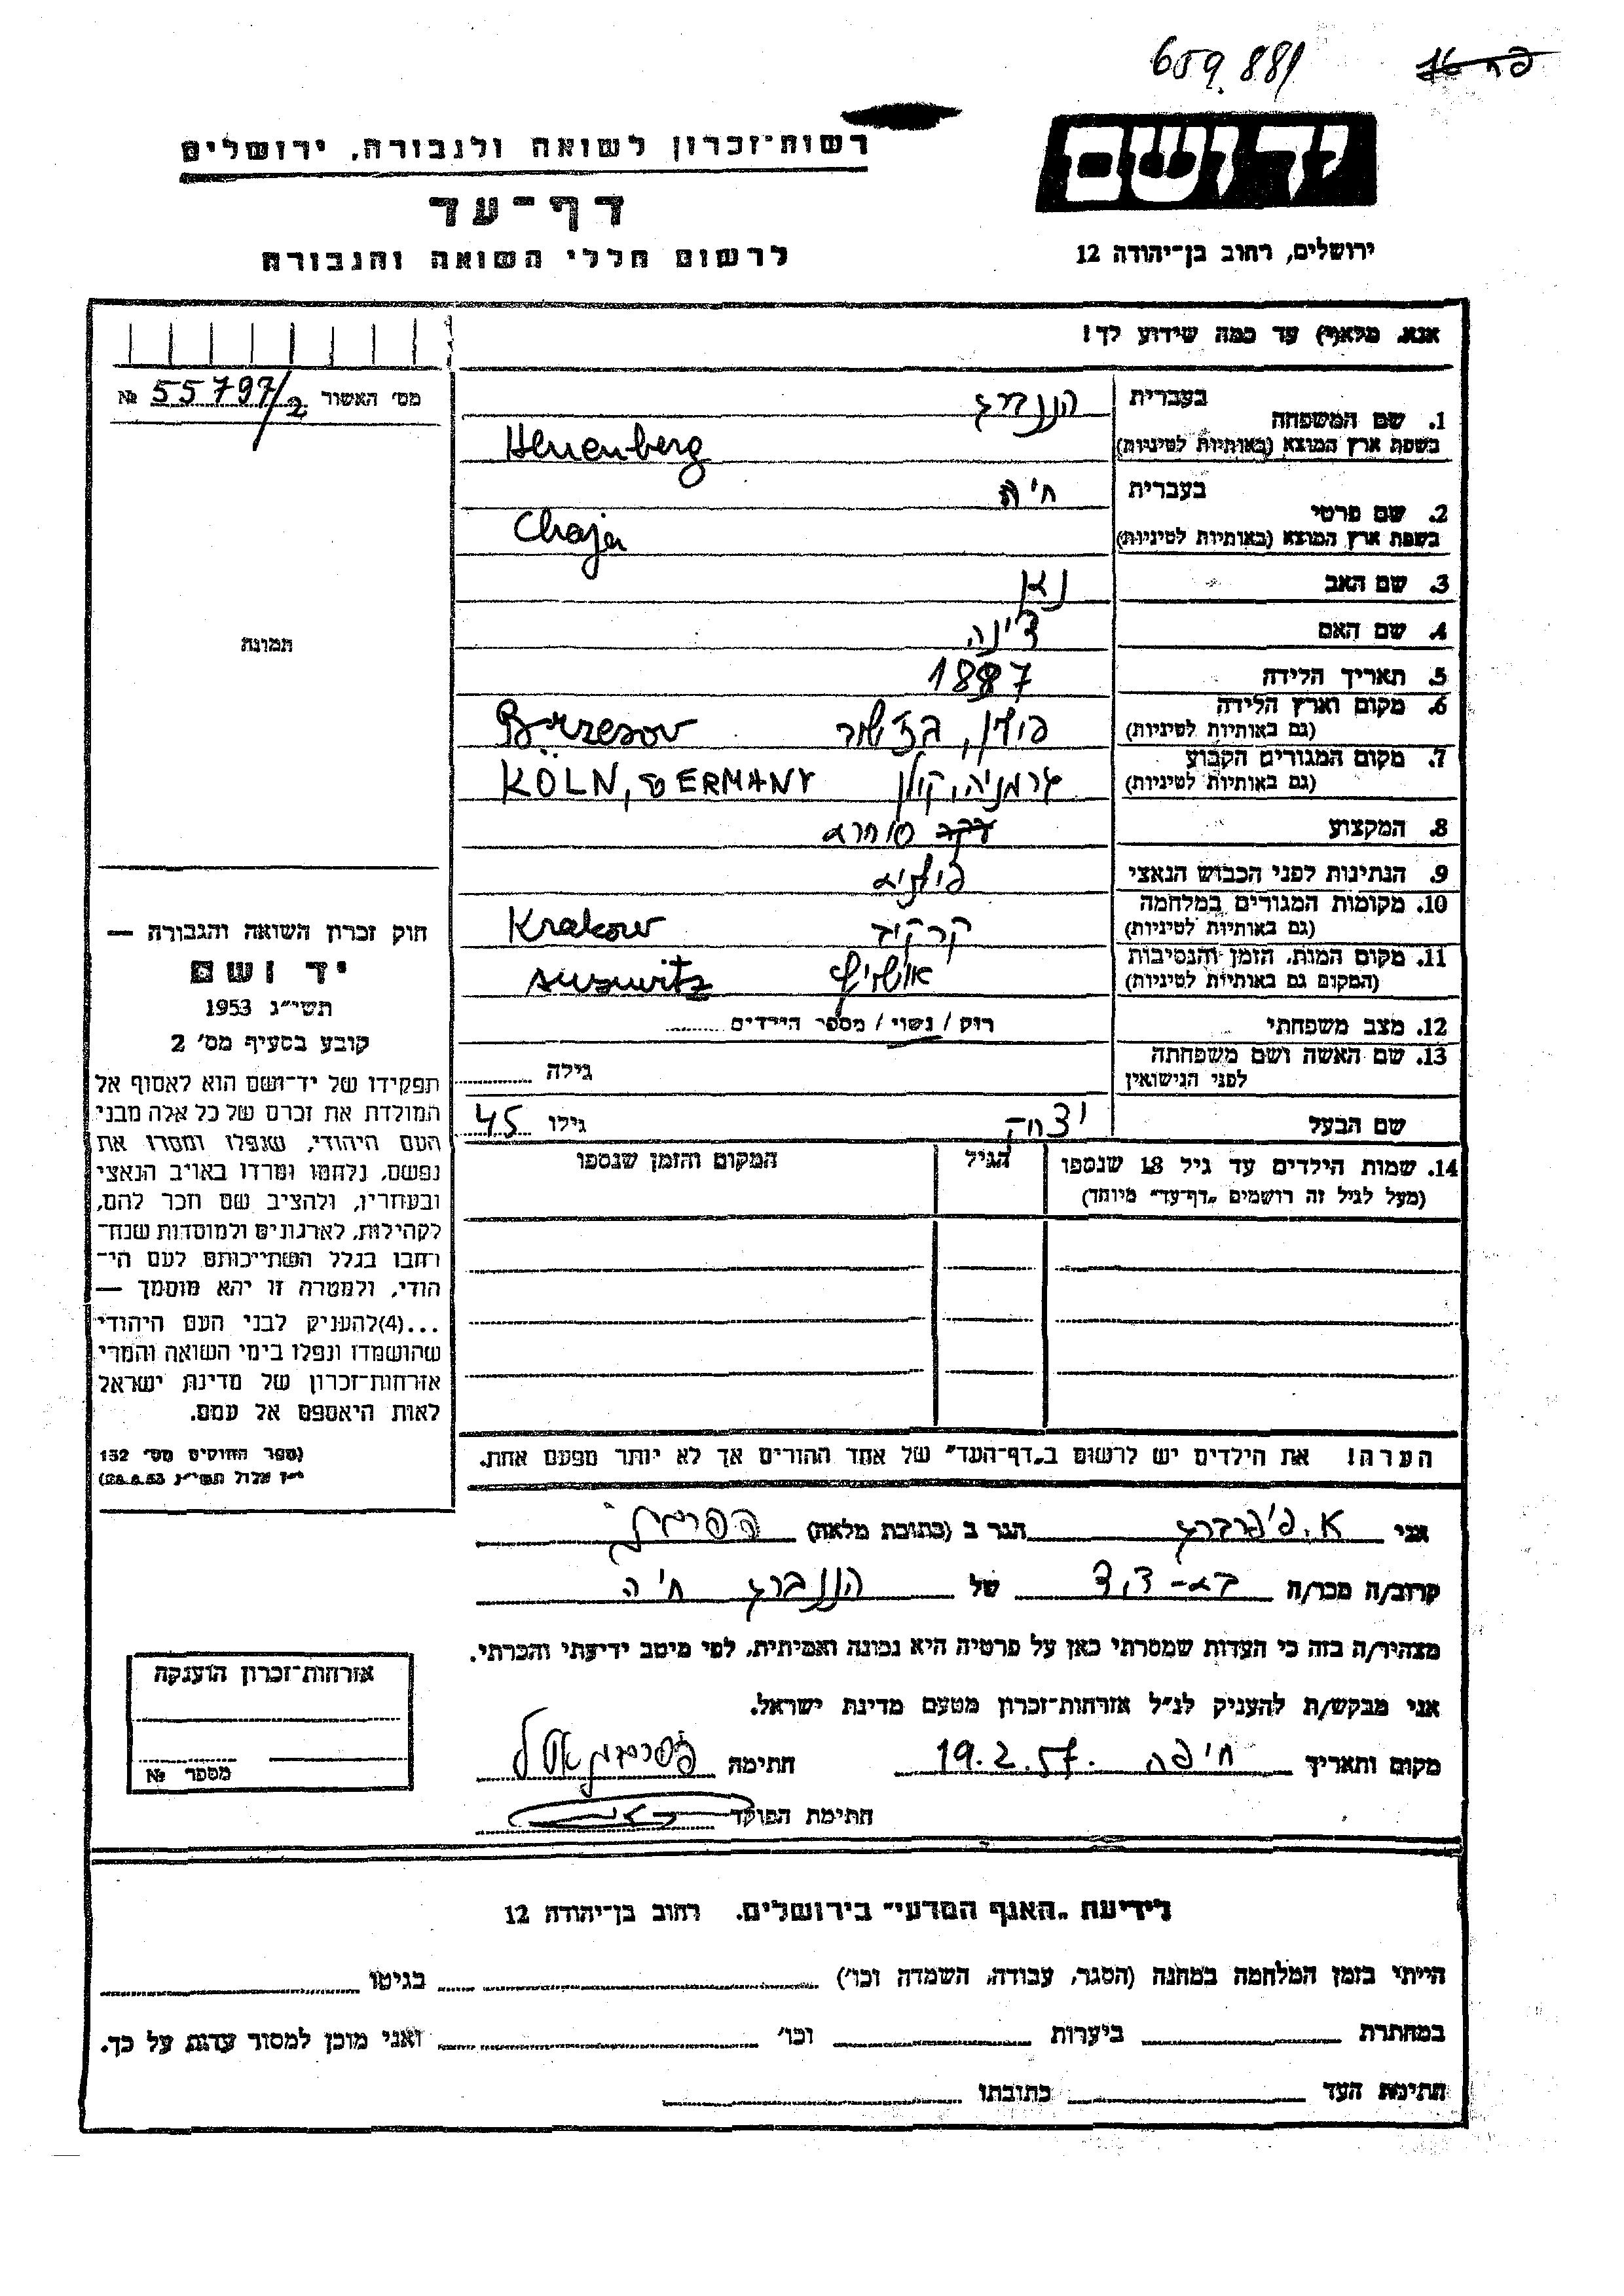 659.881
יד ושם
רשות־זכרון לשואה ולגבורה, ירושלים
דף־עד
לרשום חללי השואה והגבורה
ירושלים, רחוב בן־יהודה 12
אנא, מלא(י) עד כמה שידוע לך!
מס׳ האשור № 55797/2
1. שם המשפחה
בעברית הננברג
בשפת ארץ המוצא (באותיות לטיניות) Hennenberg
2. שם פרטי
בעברית חיה
בשפת ארץ המוצא (באותיות לטיניות) Chaja
3. שם האב
4. שם האם דינה
5. תאריך הלידה 1887
6. מקום וארץ הלידה
(גם באותיות לטיניות) פולין, Brzesov
7. מקום המגורים הקבוע
(גם באותיות לטיניות) גרמניה, קולן KÖLN, GERMANY
8. המקצוע סוחרת
9. הנתינות לפני הכבוש הנאצי פולניה
10. מקומות המגורים במלחמה
(גם באותיות לטיניות) קרקוב Krakow
11. מקום המות, הזמן והנסיבות
(המקום גם באותיות לטיניות) אושויץ Auswitz
12. מצב משפחתי רוק / נשוי / מספר הילדים
13. שם האשה ושם משפחתה
לפני הנישואין גילה
שם הבעל יצחק גילו 45
14. שמות הילדים עד גיל 18 שנספו
(מעל לגיל זה רושמים „דף־עד״ מיוחד)
הגיל
המקום והזמן שנספו
הערה! את הילדים יש לרשום ב„דף־העד״ של אחד ההורים אך לא יותר מפעם אחת.
תמונה
חוק זכרון השואה והגבורה —
יד ושם
תשי״ג 1953
קובע בסעיף מס׳ 2
תפקידו של יד־ושם הוא לאסוף אל
המולדת את זכרם של כל אלה מבני
העם היהודי, שנפלו ומסרו את
נפשם, נלחמו ומרדו באויב הנאצי
ובעוזריו, ולהציב שם וזכר להם,
לקהילות, לארגונים ולמוסדות שנח־
רחבו בגלל השתייכותם לעם הי־
הודי, ולמטרה זו יהא מוסמך —
...(4)להעניק לבני העם היהודי
שהושמדו ונפלו בימי השואה והמרי
אזרחות־זכרון של מדינת ישראל
לאות היאספם אל עמם.
(ספר החוקים מס׳ 132
י״ז אלול תשי״ג 28.8.53)
אני א. פיפרברג הגר ב (כתובת מלאה)
קרוב/ה מכר/ה בת-דוד של הננברג חיה
מצהיר/ה בזה כי העדות שמסרתי כאן על פרטיה היא נכונה ואמיתית, לפי מיטב ידיעתי והכרתי.
אני מבקש/ת להעניק לנ״ל אזרחות־זכרון מטעם מדינת ישראל.
מקום ותאריך חיפה 19.2.57 חתימה
חתימת הפוקד
אזרחות־זכרון הוענקה
מספר №
לידיעת „האגף המדעי״ בירושלים, רחוב בן־יהודה 12
הייתי בזמן המלחמה במחנה (הסגר, עבודה, השמדה וכו׳) בגיטו
במחתרת ביערות וכו׳ ואני מוכן למסור עדות על כך.
חתימת העד כתובתו